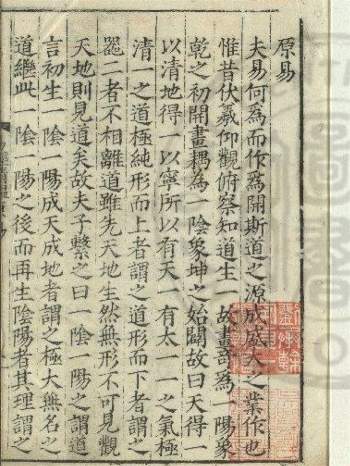 原易
夫易何為而作為開斯道之源成盛大之業作也
惟昔伏羲仰觀俯察知道生一故畫竒為一陽象
乾之初開畫耦為一陰象坤之始闢故曰天得一
以清地得一以寧所以有天一有太一一之氣極
清一之道極純形而上者謂之道形而下者謂之
噐二者不相離道雖先天地生然無形不可見觀
天地則見道矣故夫子繫之曰一陰一陽之謂道
言初生一陰一陽成天成地者謂之極大無名之
道繼此一陰一陽之後而再生陰陽者其理謂之